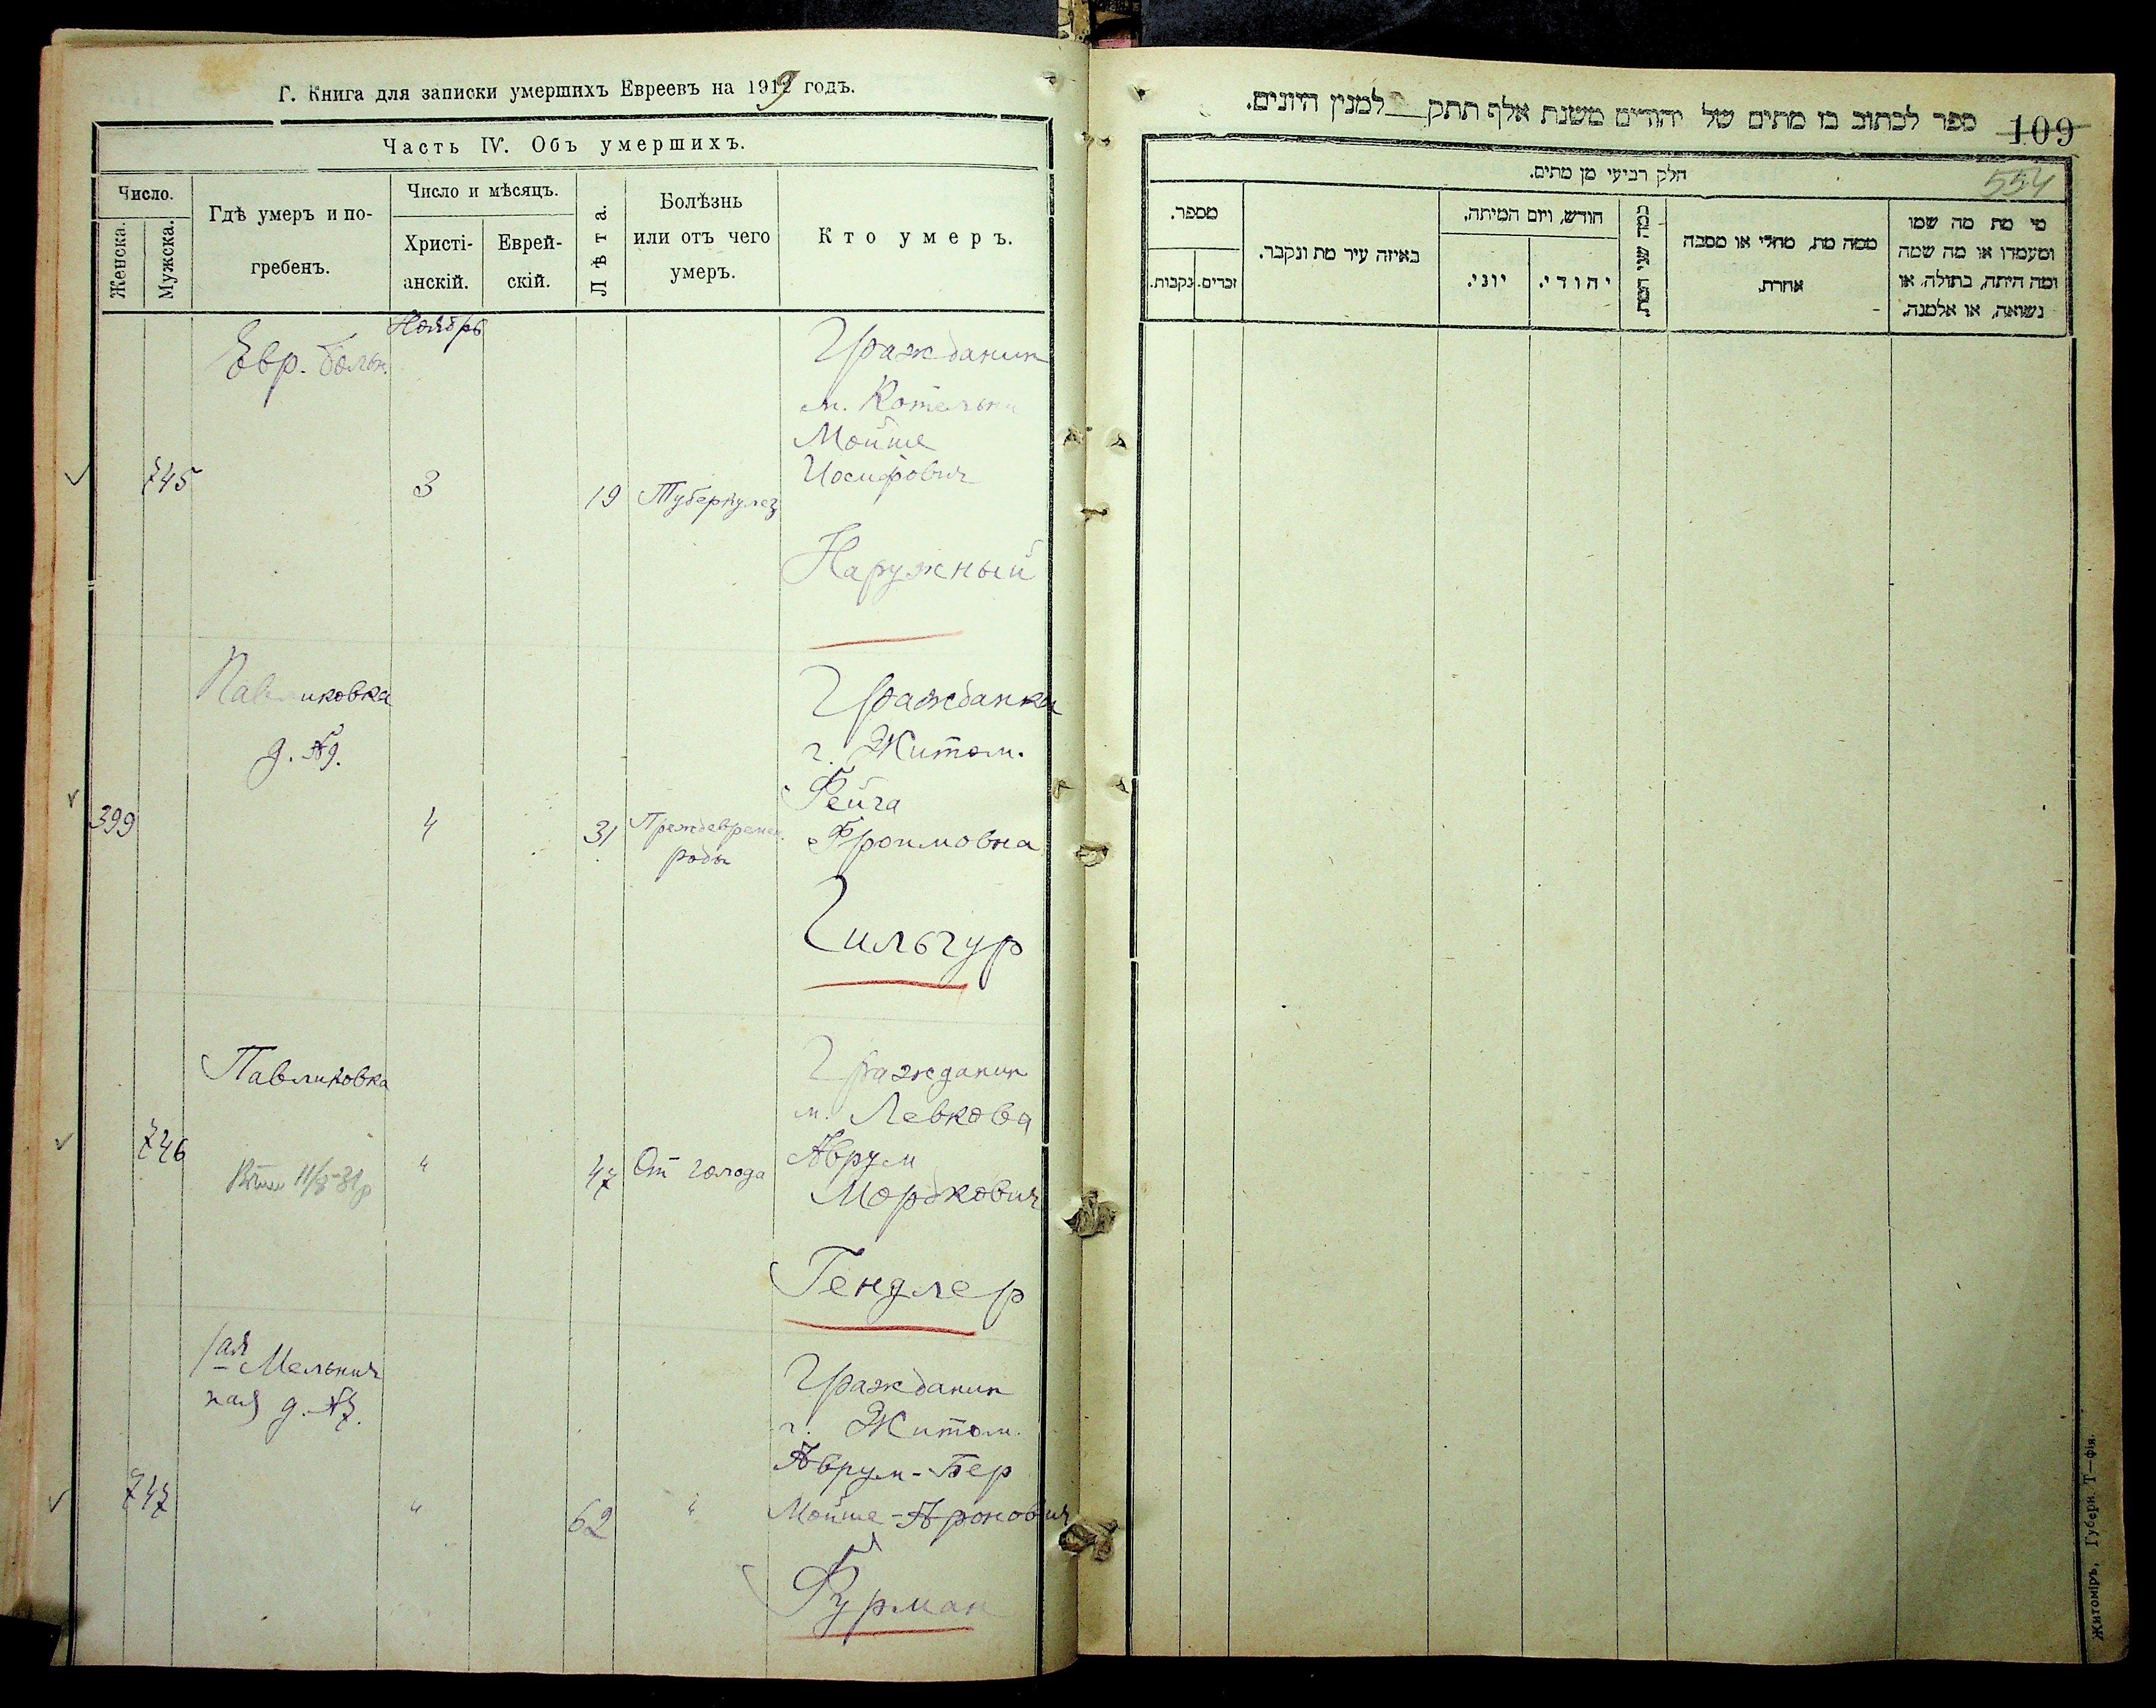 Г. Книга для записки умершихъ Евреевъ на 1919 годъ.
Часть IV. Объ умершихъ.
Число.
Женска.
Мужска.
Гдѣ умеръ и по-
гребенъ.
Число и мѣсяцъ.
Христі-
анскій.
Еврей-
скій.
Лѣта.
Болѣзнь
или отъ чего
умеръ.
Кто умеръ.
Ноябрь
Евр. больн.
745
3
19
Туберкулез
Гражданин
м. Котельни
Мойше
Иосифович
Наружный
Павликовка
д. №9.
399
4
31
Преждевремен.
роды
Гражданка
г. Житом.
Фейга
Фроимовна
Гильгур
Павликовка
746
"
47
От голода
Гражданин
м. Левкова
Аврум
Мордкович
Гендлер
1ая Мельнич
ная д. №7.
747
"
62
"
Гражданин
г. Житом.
Аврум-Бер
Мойше-Аронович
Фурман
ספר לכתוב בו מתים של יהודים משנת אלף תתק למנין היונים.
109
554
חלק רביעי מן מתים.
מי מת מה שמו
ומעמדו או מה שמה
ומה היתה, בתולה, או
נשואה, או אלמנה.
ממה מת, מחלי או מסבה
אחרת.
כמה שני המת.
חודש, ויום המיתה.
יהודי.
יוני.
באיזה עיר מת ונקבר.
מספר.
זכרים.
נקבות.
Житоміръ, Губерн. Т—фія.